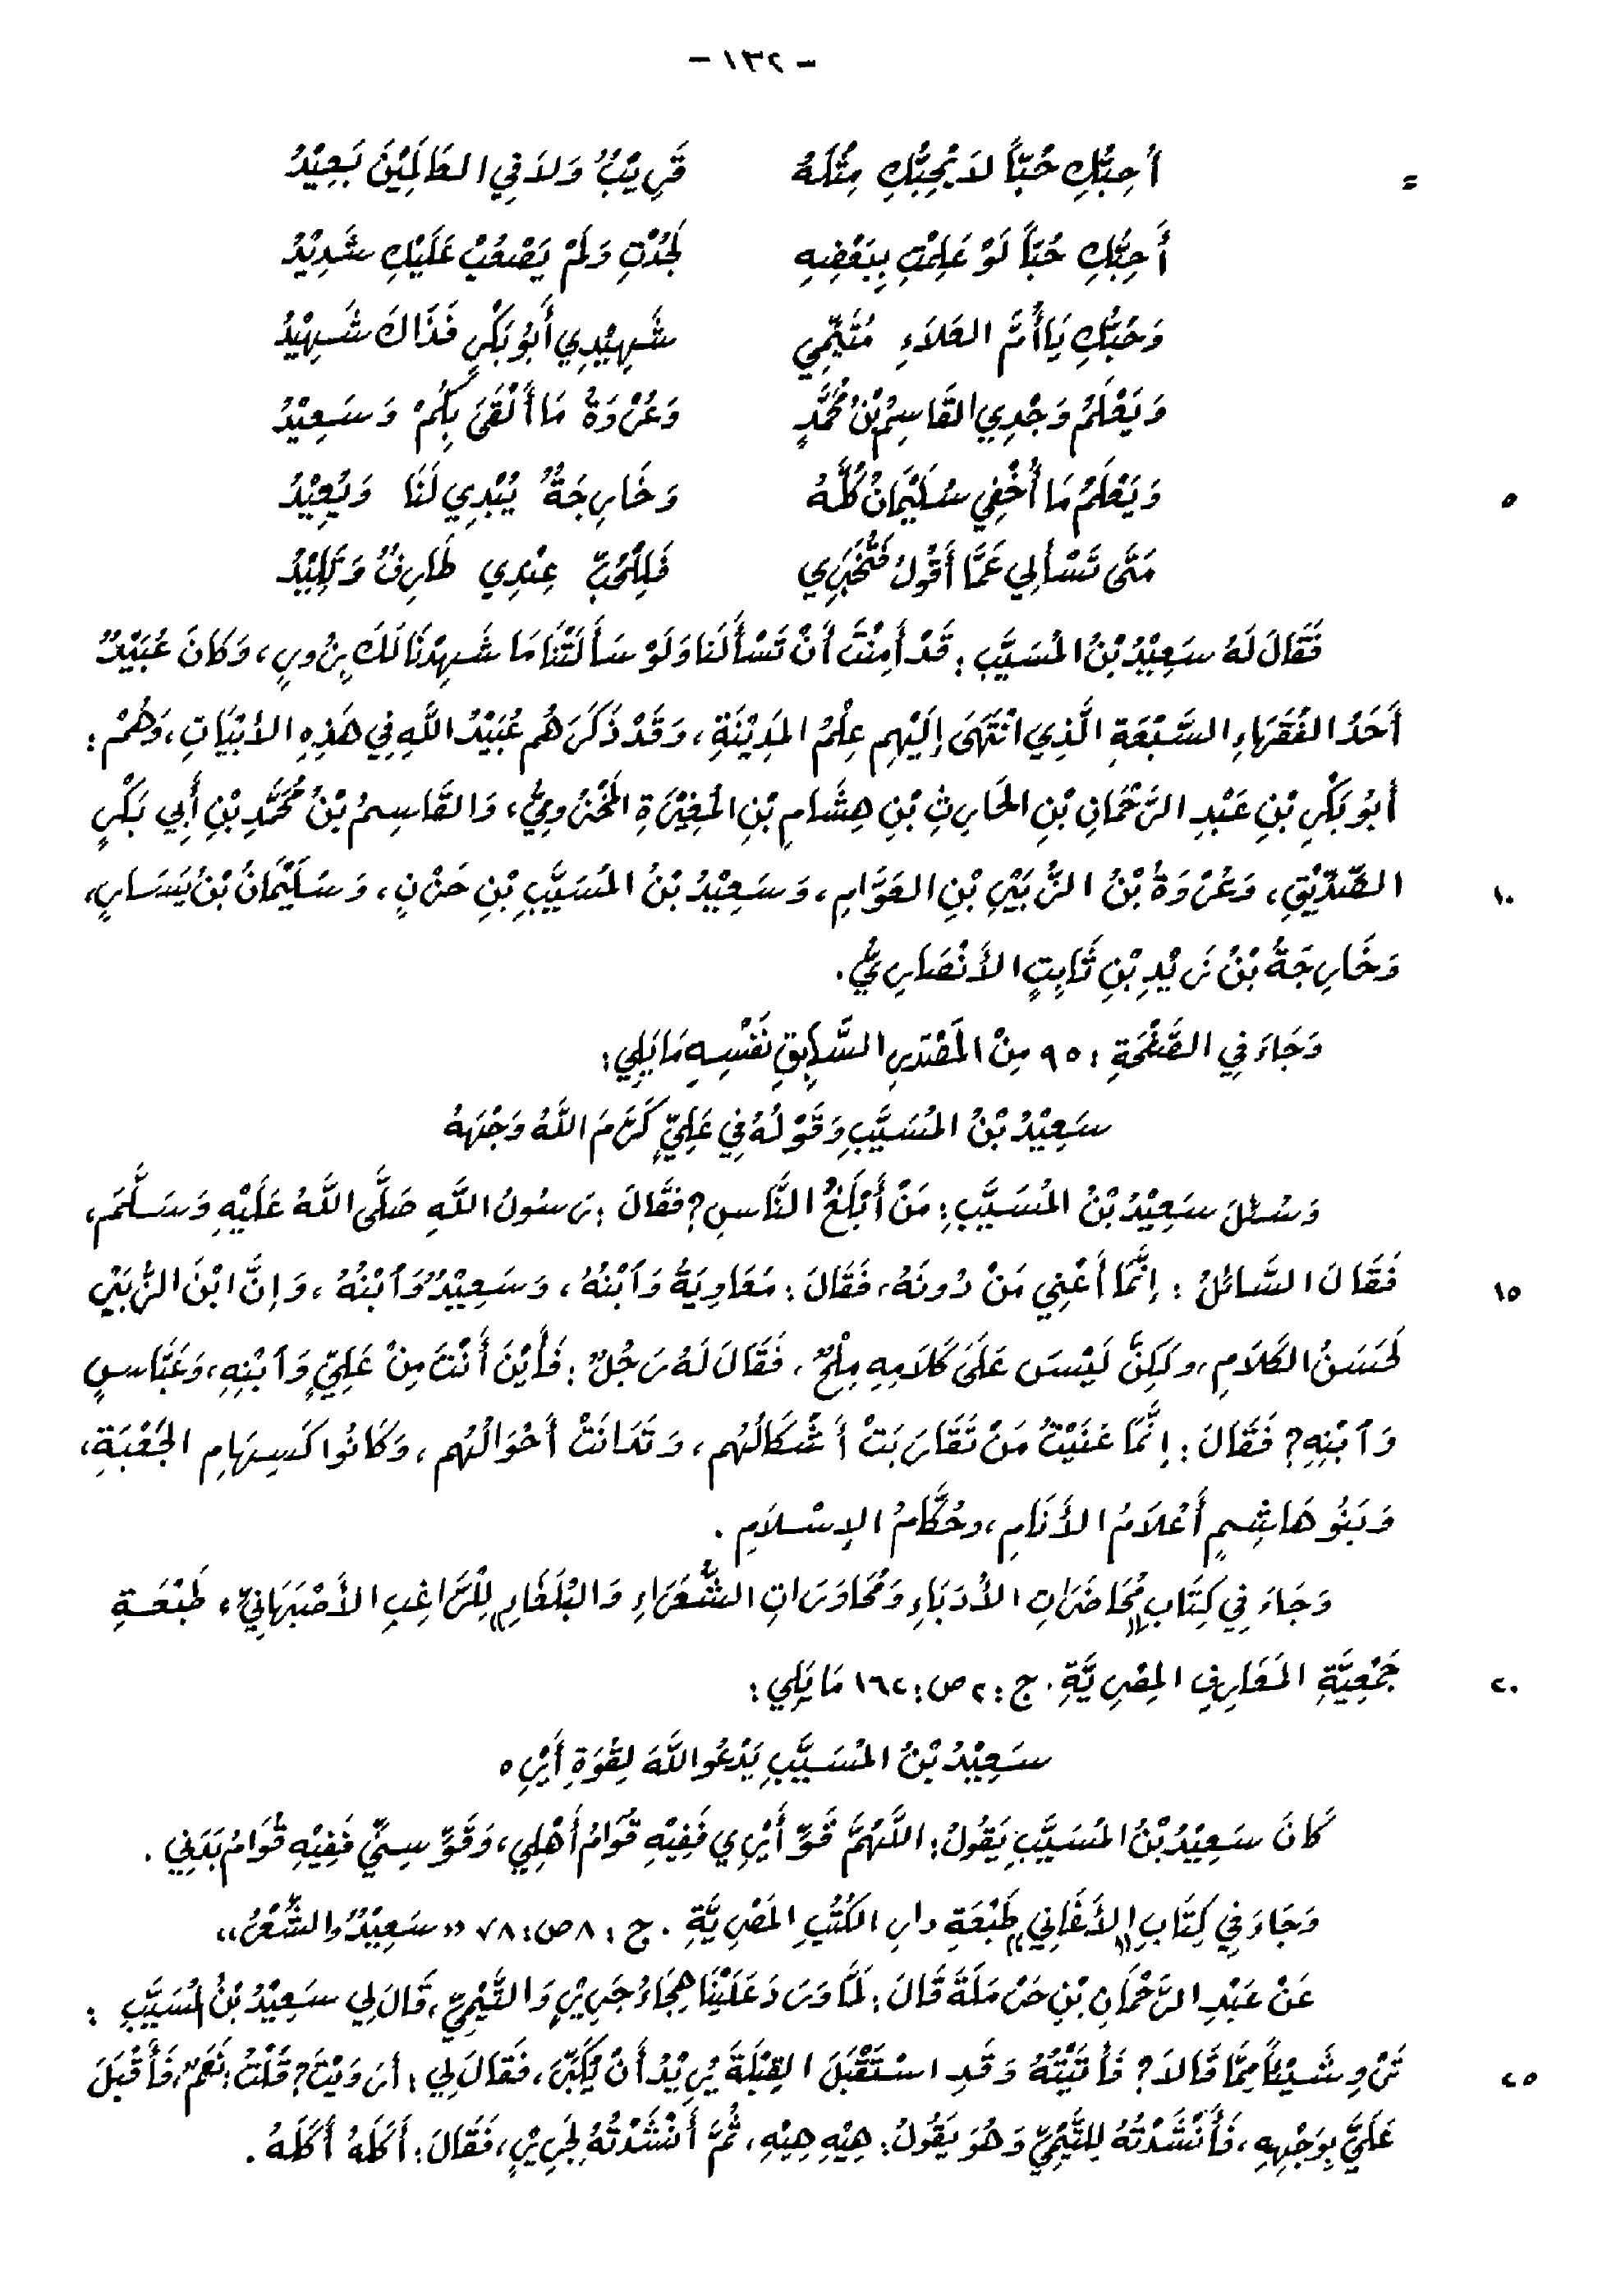 - ١٣٢ -
= أُحِبُّكِ حُبَّاً لاَ يُحِبُّكِ مِثْلَهُ قَرِيْبٌ وَلاَ فِي العَالَمِيْنَ بَعِيْدُ
أُحِبُّكِ حُبَّاً لَوْ عَلِمْتِ بِبَعْضِهِ لَجُدْتِ وَلَمْ يَصْعُبْ عَلَيْكِ شَدِيْدُ
وَحُبُّكِ يَا أُمَّ العَلاَءِ مُتَيِّمِي شَهِيْدِي أَبُو بَكْرٍ فَذَاكَ شَهِيْدُ
وَيَعْلَمُ وَجْدِي القَاسِمُ بْنُ مُحَمَّدٍ وَعُرْوَةُ مَا أَلْقَى بِكُمْ وَسَعِيْدُ
٥ وَيَعْلَمُ مَا أُخْفِي سُلَيْمَانُ كُلَّهُ وَخَارِجَةٌ يُبْدِي لَنَا وَيُعِيْدُ
مَتَى تَسْأَلِي عَمَّا أَقُولُ فَتُخْبَرِي فَلِلْحُبِّ عِنْدِي طَارِفٌ وَتَلِيْدُ
فَقَالَ لَهُ سَعِيْدُ بْنُ المُسَيَّبِ: قَدْ أَمِنْتَ أَنْ تَسْأَلَنَا وَلَوْ سَأَلَتْنَا مَا شَهِدْنَا لَكَ بِزُورٍ، وَكَانَ عُبَيْدٌ
أَحَدُ الفُقَهَاءِ السَّبْعَةِ الَّذِي انْتَهَى إِلَيْهِم عِلْمُ المَدِيْنَةِ، وَقَدْ ذَكَرَهُم عُبَيْدُ اللَّهِ فِي هَذِهِ الأَبْيَاتِ، وَهُمْ:
أَبُو بَكْرِ بْنِ عَبْدِ الرَّحْمَانِ بْنِ الحَارِثِ بْنِ هِشَامِ بْنِ المُغِيْرَةِ المَخْزُومِيُّ، وَالقَاسِمُ بْنُ مُحَمَّدِ بْنِ أَبِي بَكْرٍ
١٠ الصِّدِّيْقِ، وَعُرْوَةُ بْنُ الزُّبَيْرِ بْنِ العَوَّامِ، وَسَعِيْدُ بْنُ المُسَيَّبِ بْنِ حَزْنٍ، وَسُلَيْمَانُ بْنُ يَسَارٍ،
وَخَارِجَةُ بْنُ زَيْدِ بْنِ ثَابِتٍ الأَنْصَارِيُّ.
وَجَاءَ فِي الصَّفْحَةِ: ٩٥ مِنْ المَصْدَرِ السَّابِقِ نَفْسِهِ مَا يَلِي:
سَعِيْدُ بْنُ المُسَيَّبِ وَقَوْلُهُ فِي عَلِيٍّ كَرَّمَ اللَّهُ وَجْهَهُ
وَسُئِلَ سَعِيْدُ بْنُ المُسَيَّبِ: مَنْ أَبْلَغُ النَّاسِ؟ فَقَالَ: رَسُولُ اللَّهِ صَلَّى اللَّهُ عَلَيْهِ وَسَلَّمَ،
١٥ فَقَالَ السَّائِلُ: إِنَّمَا أَعْنِي مَنْ دُونَهُ، فَقَالَ: مُعَاوِيَةُ وَٱبْنُهُ، وَسَعِيْدٌ وَٱبْنُهُ، وَإِنَّ ابْنَ الزُّبَيْرِ
لَحَسَنُ الكَلاَمِ، وَلكِنْ لَيْسَ عَلَى كَلاَمِهِ مِلْحٌ، فَقَالَ لَهُ رَجُلٌ: فَأَيْنَ أَنْتَ مِنْ عَلِيٍّ وَٱبْنِهِ، وَعَبَّاسٍ
وَٱبْنِهِ؟ فَقَالَ: إِنَّمَا عَنَيْتُ مَنْ تَقَارَبَتْ أَشْكَالُهُم، وَتَدَانَتْ أَحْوَالُهُم، وَكَانُوا كَسِهَامِ الجَعْبَةِ،
وَبَنُو هَاشِمٍ أَعْلاَمُ الأَنَامِ، وحُكَّامُ الإِسْلاَمِ.
وَجَاءَ فِي كِتَابِ «مُحَاضَرَاتِ الأُدَبَاءِ وَمُحَاوَرَاتِ الشُّعَرَاءِ وَالبُلَغَاءِ» لِلْرَّاغِبِ الأَصْبَهَانِيِّ، طَبْعَةِ
٢٠ جَمْعِيَّةِ المَعَارِفِ المِصْرِيَّةِ. ج: ٢ ص: ١٦٢ مَا يَلِي:
سَعِيْدُ بْنُ المُسَيَّبِ يَدْعُو اللَّهَ لِقُوَةِ أَيْرِهِ
كَانَ سَعِيْدُ بْنُ المُسَيَّبِ يَقُولُ: اللَّهُمَّ قَوِّ أَيْرِي فَفِيْهِ قُوَامُ أَهْلِي، وَقَوِّ سِنِّي فَفِيْهِ قُوَامُ بَدَنِي.
وَجَاءَ فِي كِتَابِ «الأَغَانِي» طَبْعَةِ دارِ الكُتُبِ المَصْرِيَّةِ. ج: ٨ ص: ٧٨ «سَعِيْدٌ والشِّعْرُ»
عَنْ عَبْدِ الرَّحْمَانِ بْنِ حَرْمَلَةَ قَالَ: لَمَّا وَرَدَ عَلَيْنَا هِجَاءُ جَرِيْرٍ وَالتَّيْمِيِّ، قَالَ لِي سَعِيْدُ بْنُ المُسَيَّبِ:
٢٥ تَرْوِ شَيْئَاً مِمَّا قَالاَ؟ فَأَتَيْتُهُ وَقَدِ اسْتَقْبَلَ القِبْلَةَ يُرِيْدُ أَنْ يُكَبِّرَ، فَقَالَ لِي: أَرَوَيْتَ؟ قُلْتُ: نَعَمْ، فَأَقْبَلَ
عَلَيَّ بِوَجْهِهِ، فَأَنْشَدْتُهُ لِلتَّيْمِيِّ وَهُوَ يَقُولُ: هِيْهِ هِيْهِ، ثُمَّ أَنْشَدْتُهُ لِجَرِيْرٍ، فَقَالَ: أَكَلَهُ أَكَلَهُ.